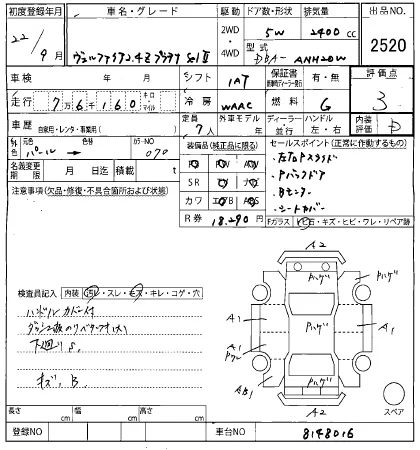 初度登録年月 車名・グレード 駆動 ドア数・形状 排気量 出品NO.
22/9月 ヴェルファイア2.4Z プラチナ Sel II 2WD ・ 4WD 5W 2400cc 2520
型式 DBA- ANH20W
車検 年 月 シフト IAT 保証書 有・無 評価点
走行 7万6千160 キロ マイル 冷房 WAAC 燃料 G 3
車歴 自家用・レンタ・事業用( ) 定員 7人 外車モデル 年 ディーラー・並行 ハンドル 左・右 内装評価 D
外色 元色 パール 色替 カラーNO 070 装備品(純正品に限る) セールスポイント(正常に作動するもの)
名義変更期限 月 日迄 積載 t
・左右Pスライド
・Pバックドア
・Bモニター
・シートカバー
注意事項(欠品・修復・不具合箇所および状態)
SR ナビ TV
カワ エアB ABS
R券 18,290円 Fガラス ヒ石・キズ・ヒビ・ワレ・リペア跡
検査員記入 内装 汚レ・スレ・モヘ・キレ・コゲ・穴
ハンドルカバー付
下廻りS,
キズ, B,
A2
Pハゲ Pハゲ
A1 Pハゲ A1
AB1 Pハゲ
A2 スペア
長さ cm 幅 cm 高さ cm
登録NO 車台NO 8148016